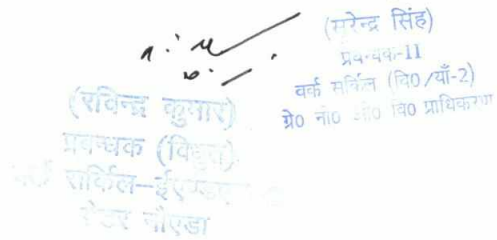 (सुरेन्द्र सिंह)
प्रबन्धक-II
वर्क सर्किल (वि0/याँ-2)
ग्रे0 नौ0 औ0 वि0 प्राधिकरण
(रविन्द्र कुमार)
प्रबन्धक (विद्युत)
वर्क सर्किल-ईएण्डएम
ग्रेटर नौएडा